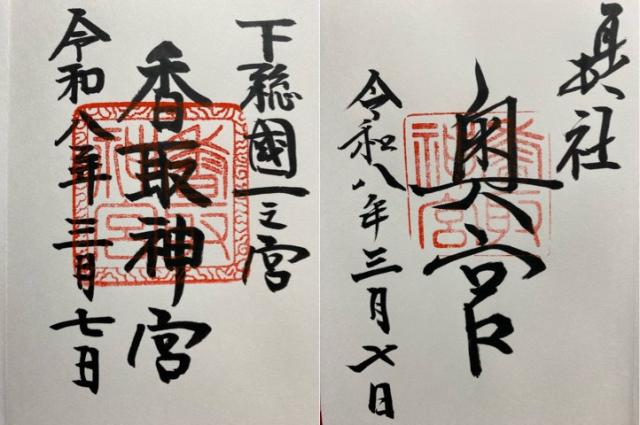 下総國一之宮
香取神宮
令和八年三月七日
香取神宮
社
奥宮
令和八年三月七日
香取神宮